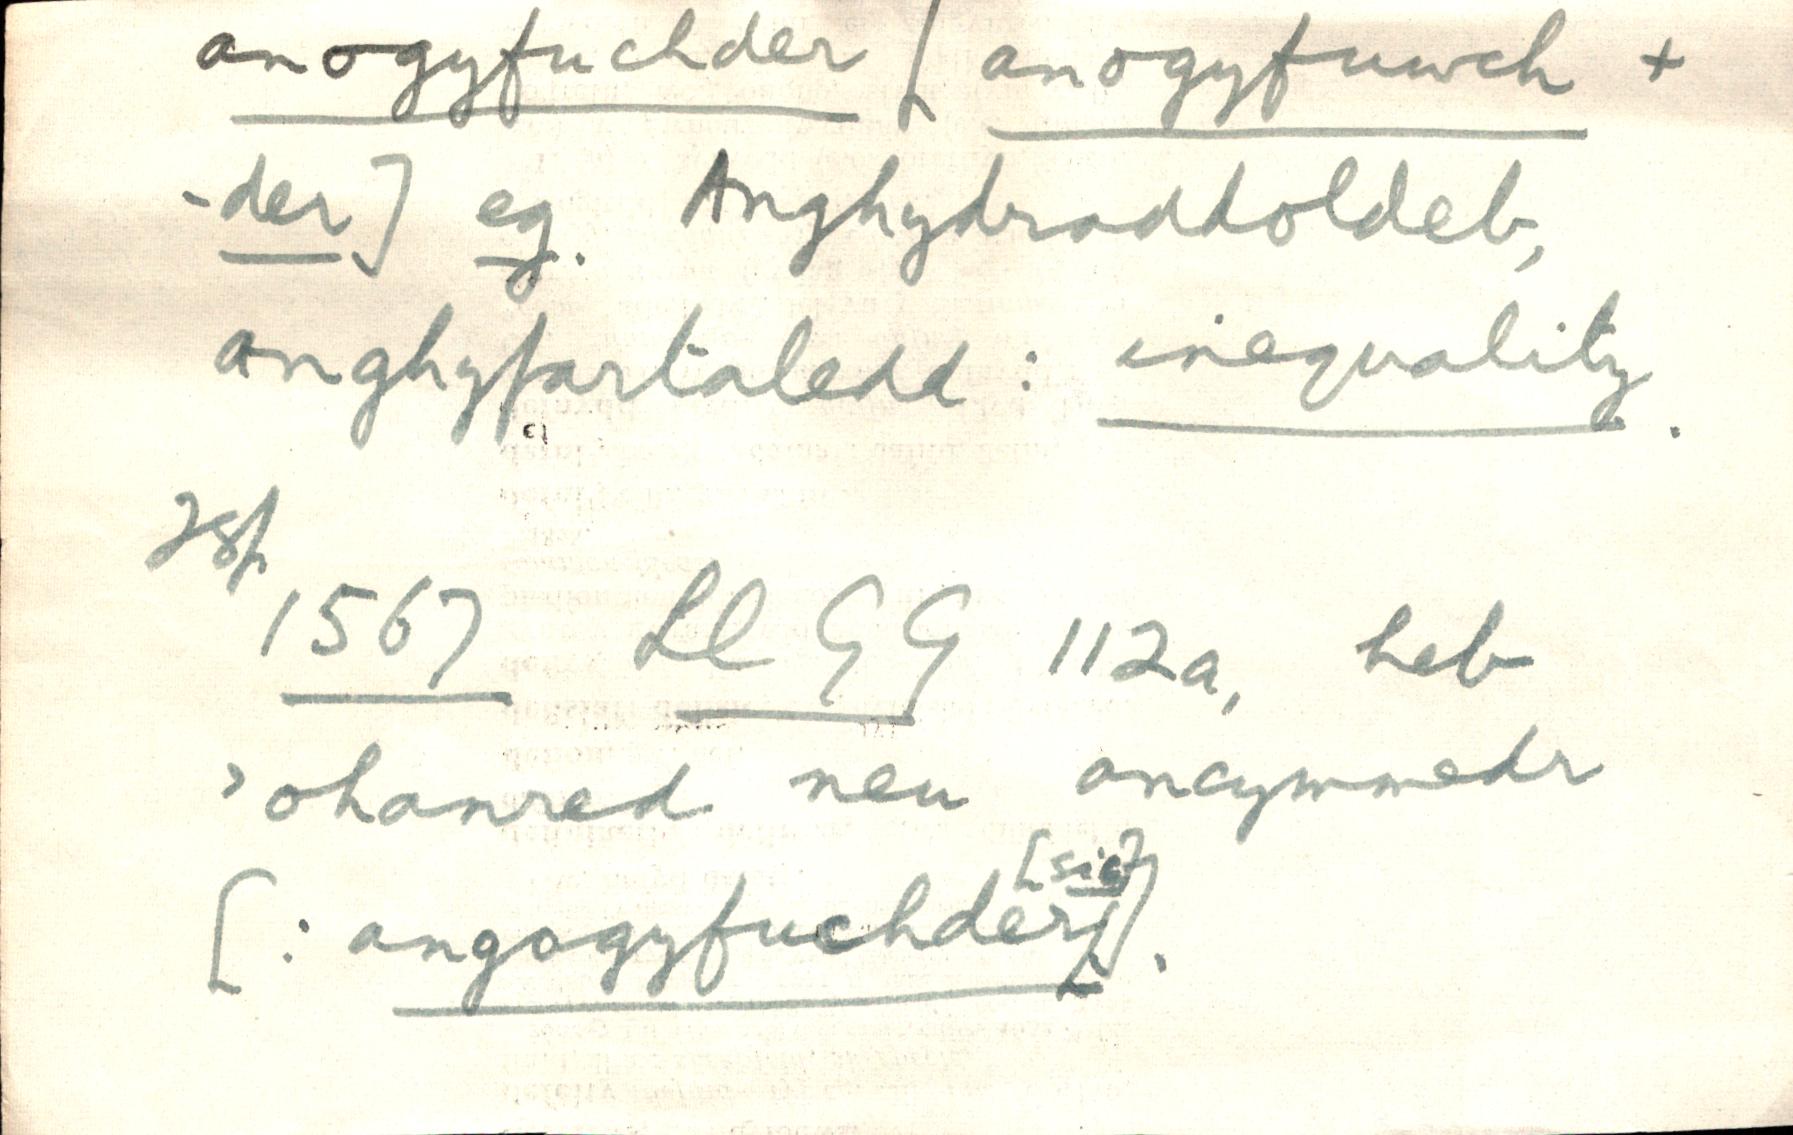 anogyfuchder [anogyfuwch +
-der] eg. Anghydraddoldeb,
anghyfartaledd: inequality.
1567 LlGG 112a, heb
'ohanred neu ancymmedr
[sic]
[: angogyfuchder].